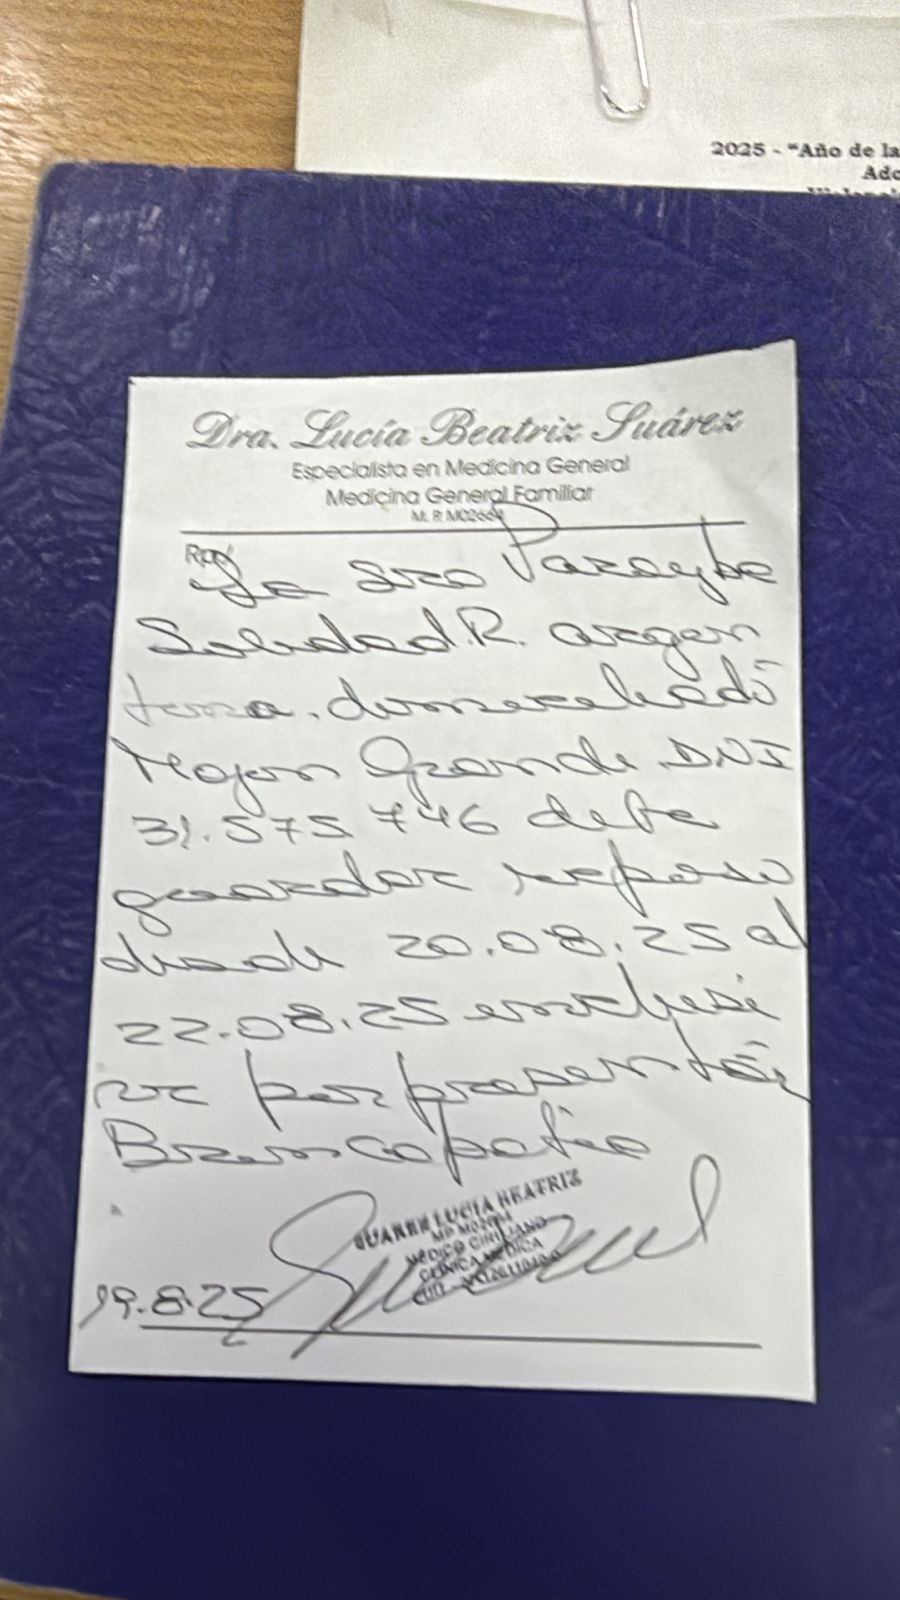 2025 - "Año de la
Ado
Dra. Lucía Beatriz Suárez
Especialista en Medicina General
Medicina General Familiar
M. P. M02664
Rp/
La Sra Parayba
Soledad R. argen
tina. domiciliada
Mojon Grande DNI
31.575 746 debe
guardar reposo
desde 20.08.25 al
22.08.25 inclusi
ve por presentar
Broncopatia
SUAREZ LUCIA BEATRIZ
MEDICO CIRUJANO
CLINICA MEDICA
19.8.25